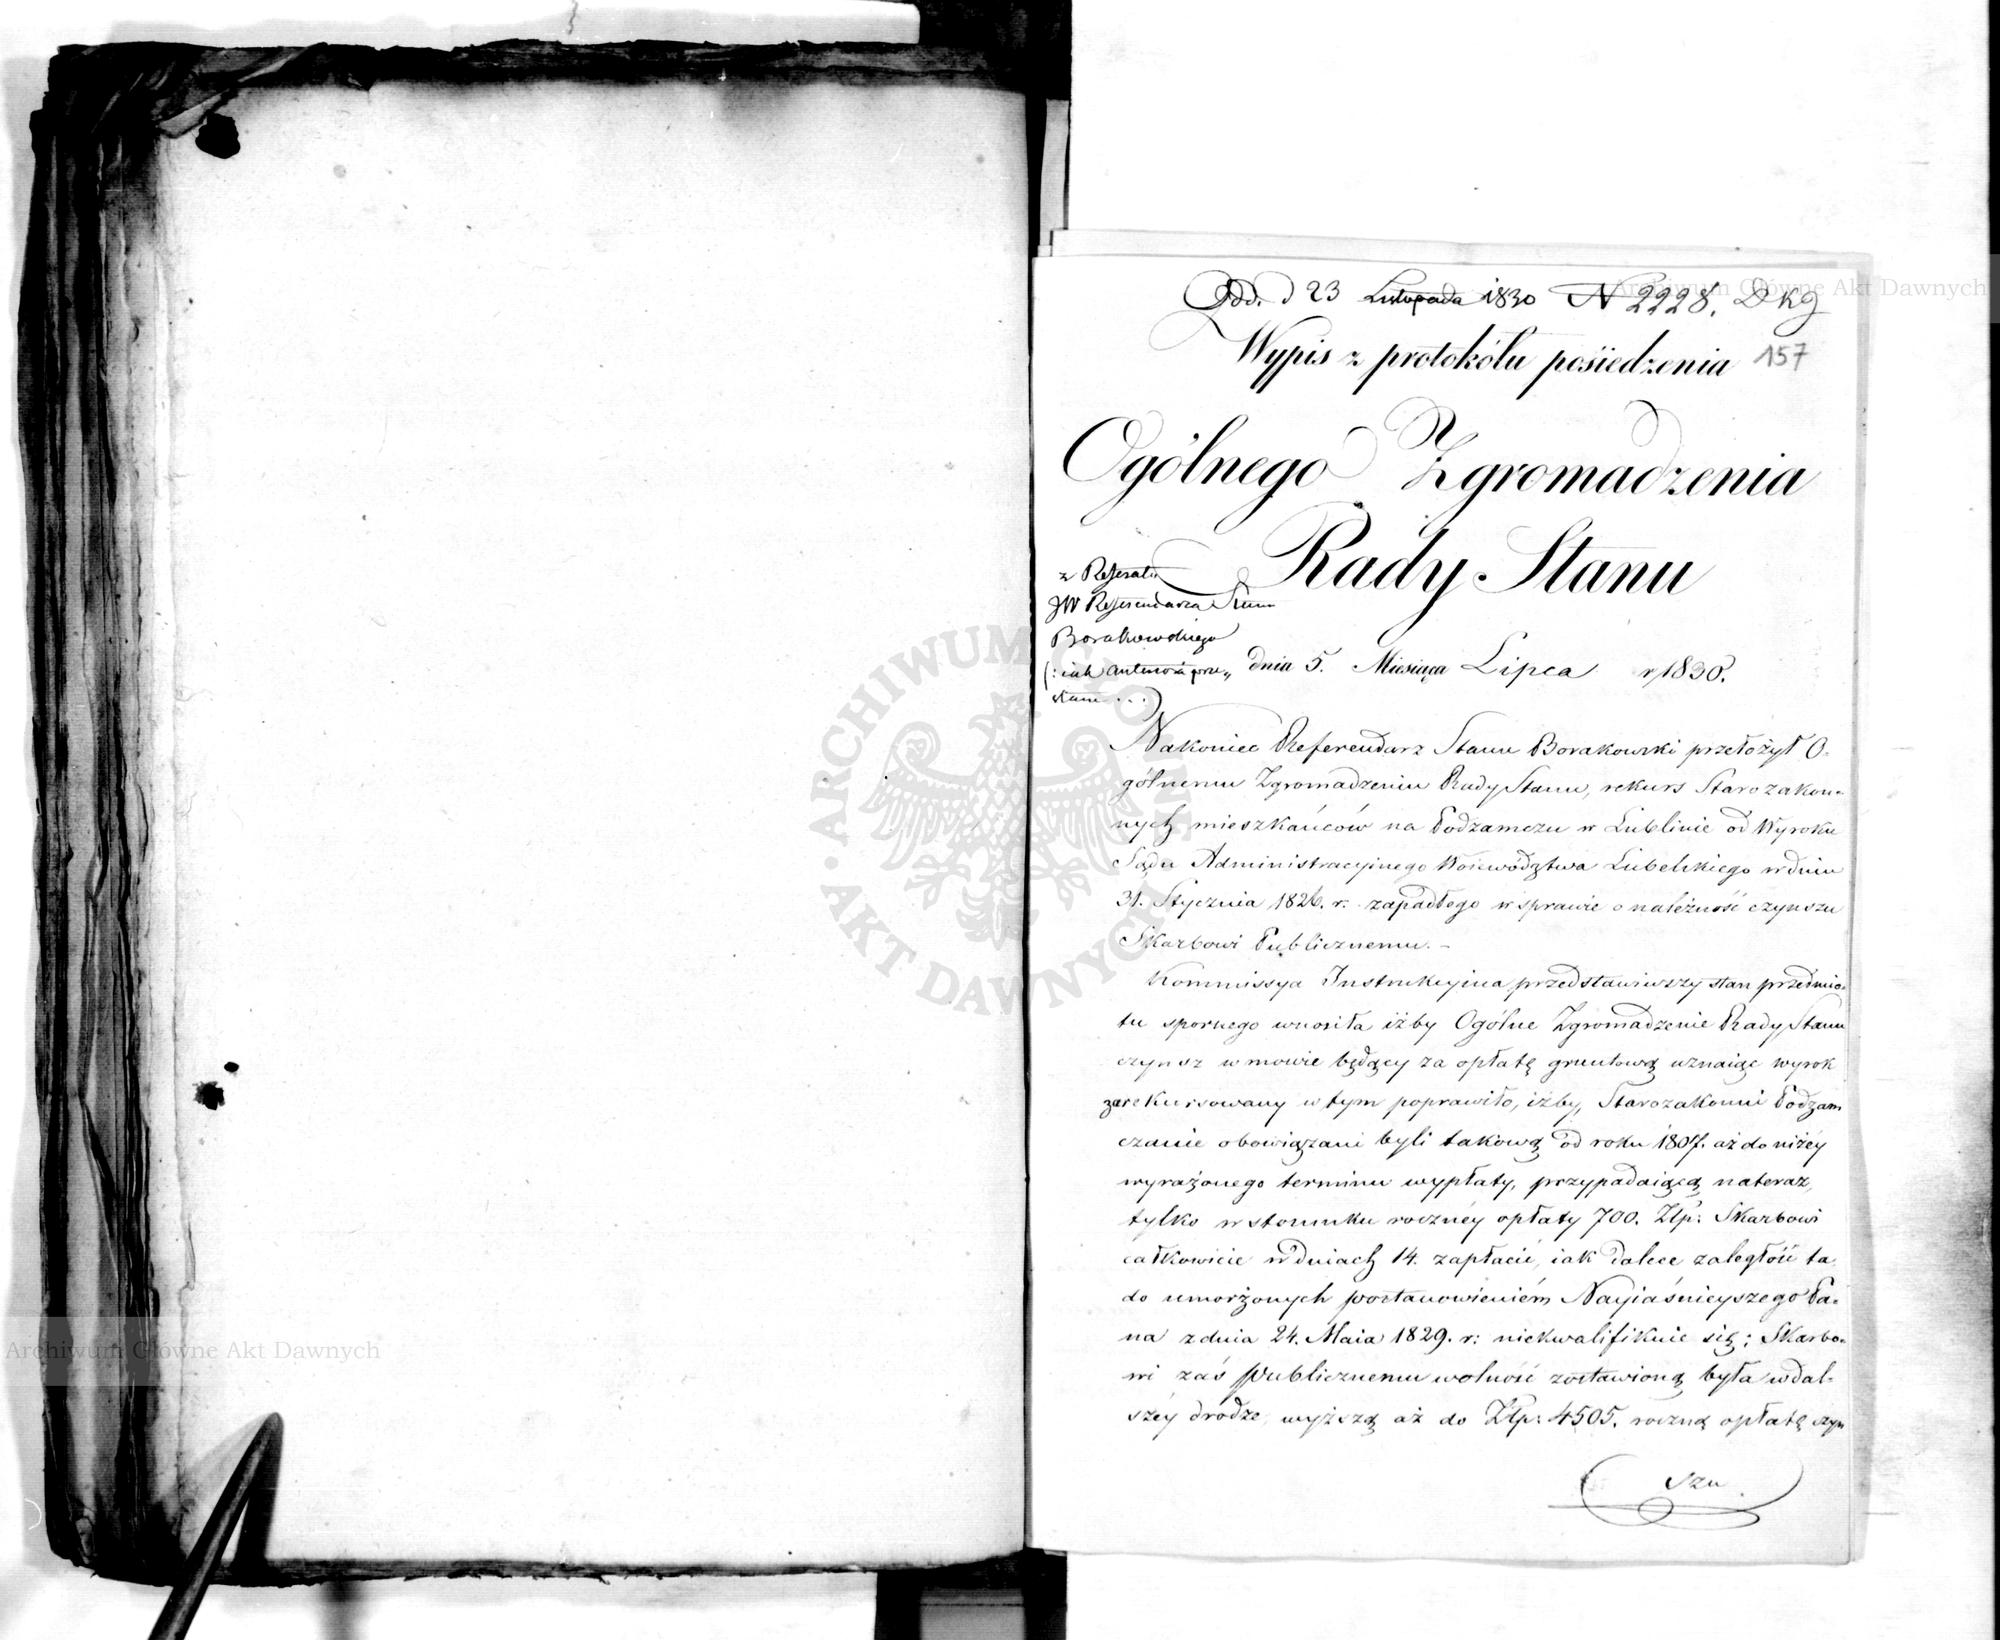 Odd. d 23 Listopada 1830 N 2228. D k g
Wypis z protokółu posiedzenia 157
Ogólnego Zgromadzenia
Rady Stanu
z Referatu
JW Referendarza Stanu
Borakowskiego
dnia 5. Miesiąca Lipca r. 1830.
Nakoniec Referendarz Stanu Borakowski przełożył O-
gólnemu Zgromadzeniu Rady Stanu, rekurs Starozakon-
nych mieszkańców na Podzamczu w Lublinie od Wyroku
Sądu Administracyinego Woiewództwa Lubelskiego w dniu
31. Stycznia 1826. r. zapadłego w sprawie o należność czynszu
Skarbowi Publicznemu. –
Kommissya Instrukcyina przedstawiwszy stan przedmio-
tu spornego wnosiła iżby Ogólne Zgromadzenie Rady Stanu
czynsz w mowie będący za opłatę gruntową uznaiąc wyrok
zarekursowany w tym poprawiło, iżby, Starozakonni Podzam
czanie obowiązani byli takową od roku 1807. aż do niżéy
wyrażonego terminu wypłaty, przypadaiącą na teraz,
tylko w stosunku rocznéy opłaty 700. Złp: Skarbowi
całkowicie w dniach 14. zapłacić, iak dalece zaległość ta
do umorżonych postanowieniém Nayiaśnieyszego Pa-
na z dnia 24. Maia 1829. r: niekwalifikuie się; Skarbo-
wi zaś publicznemu wolność zostawioną była w dal-
széy drodze, wyższą aż do Złp: 4505. roczną opłatę czyn
szu
Archiwum Główne Akt Dawnych
Archiwum Główne Akt Dawnych
ARCHIWUM GŁÓWNE AKT DAWNYCH